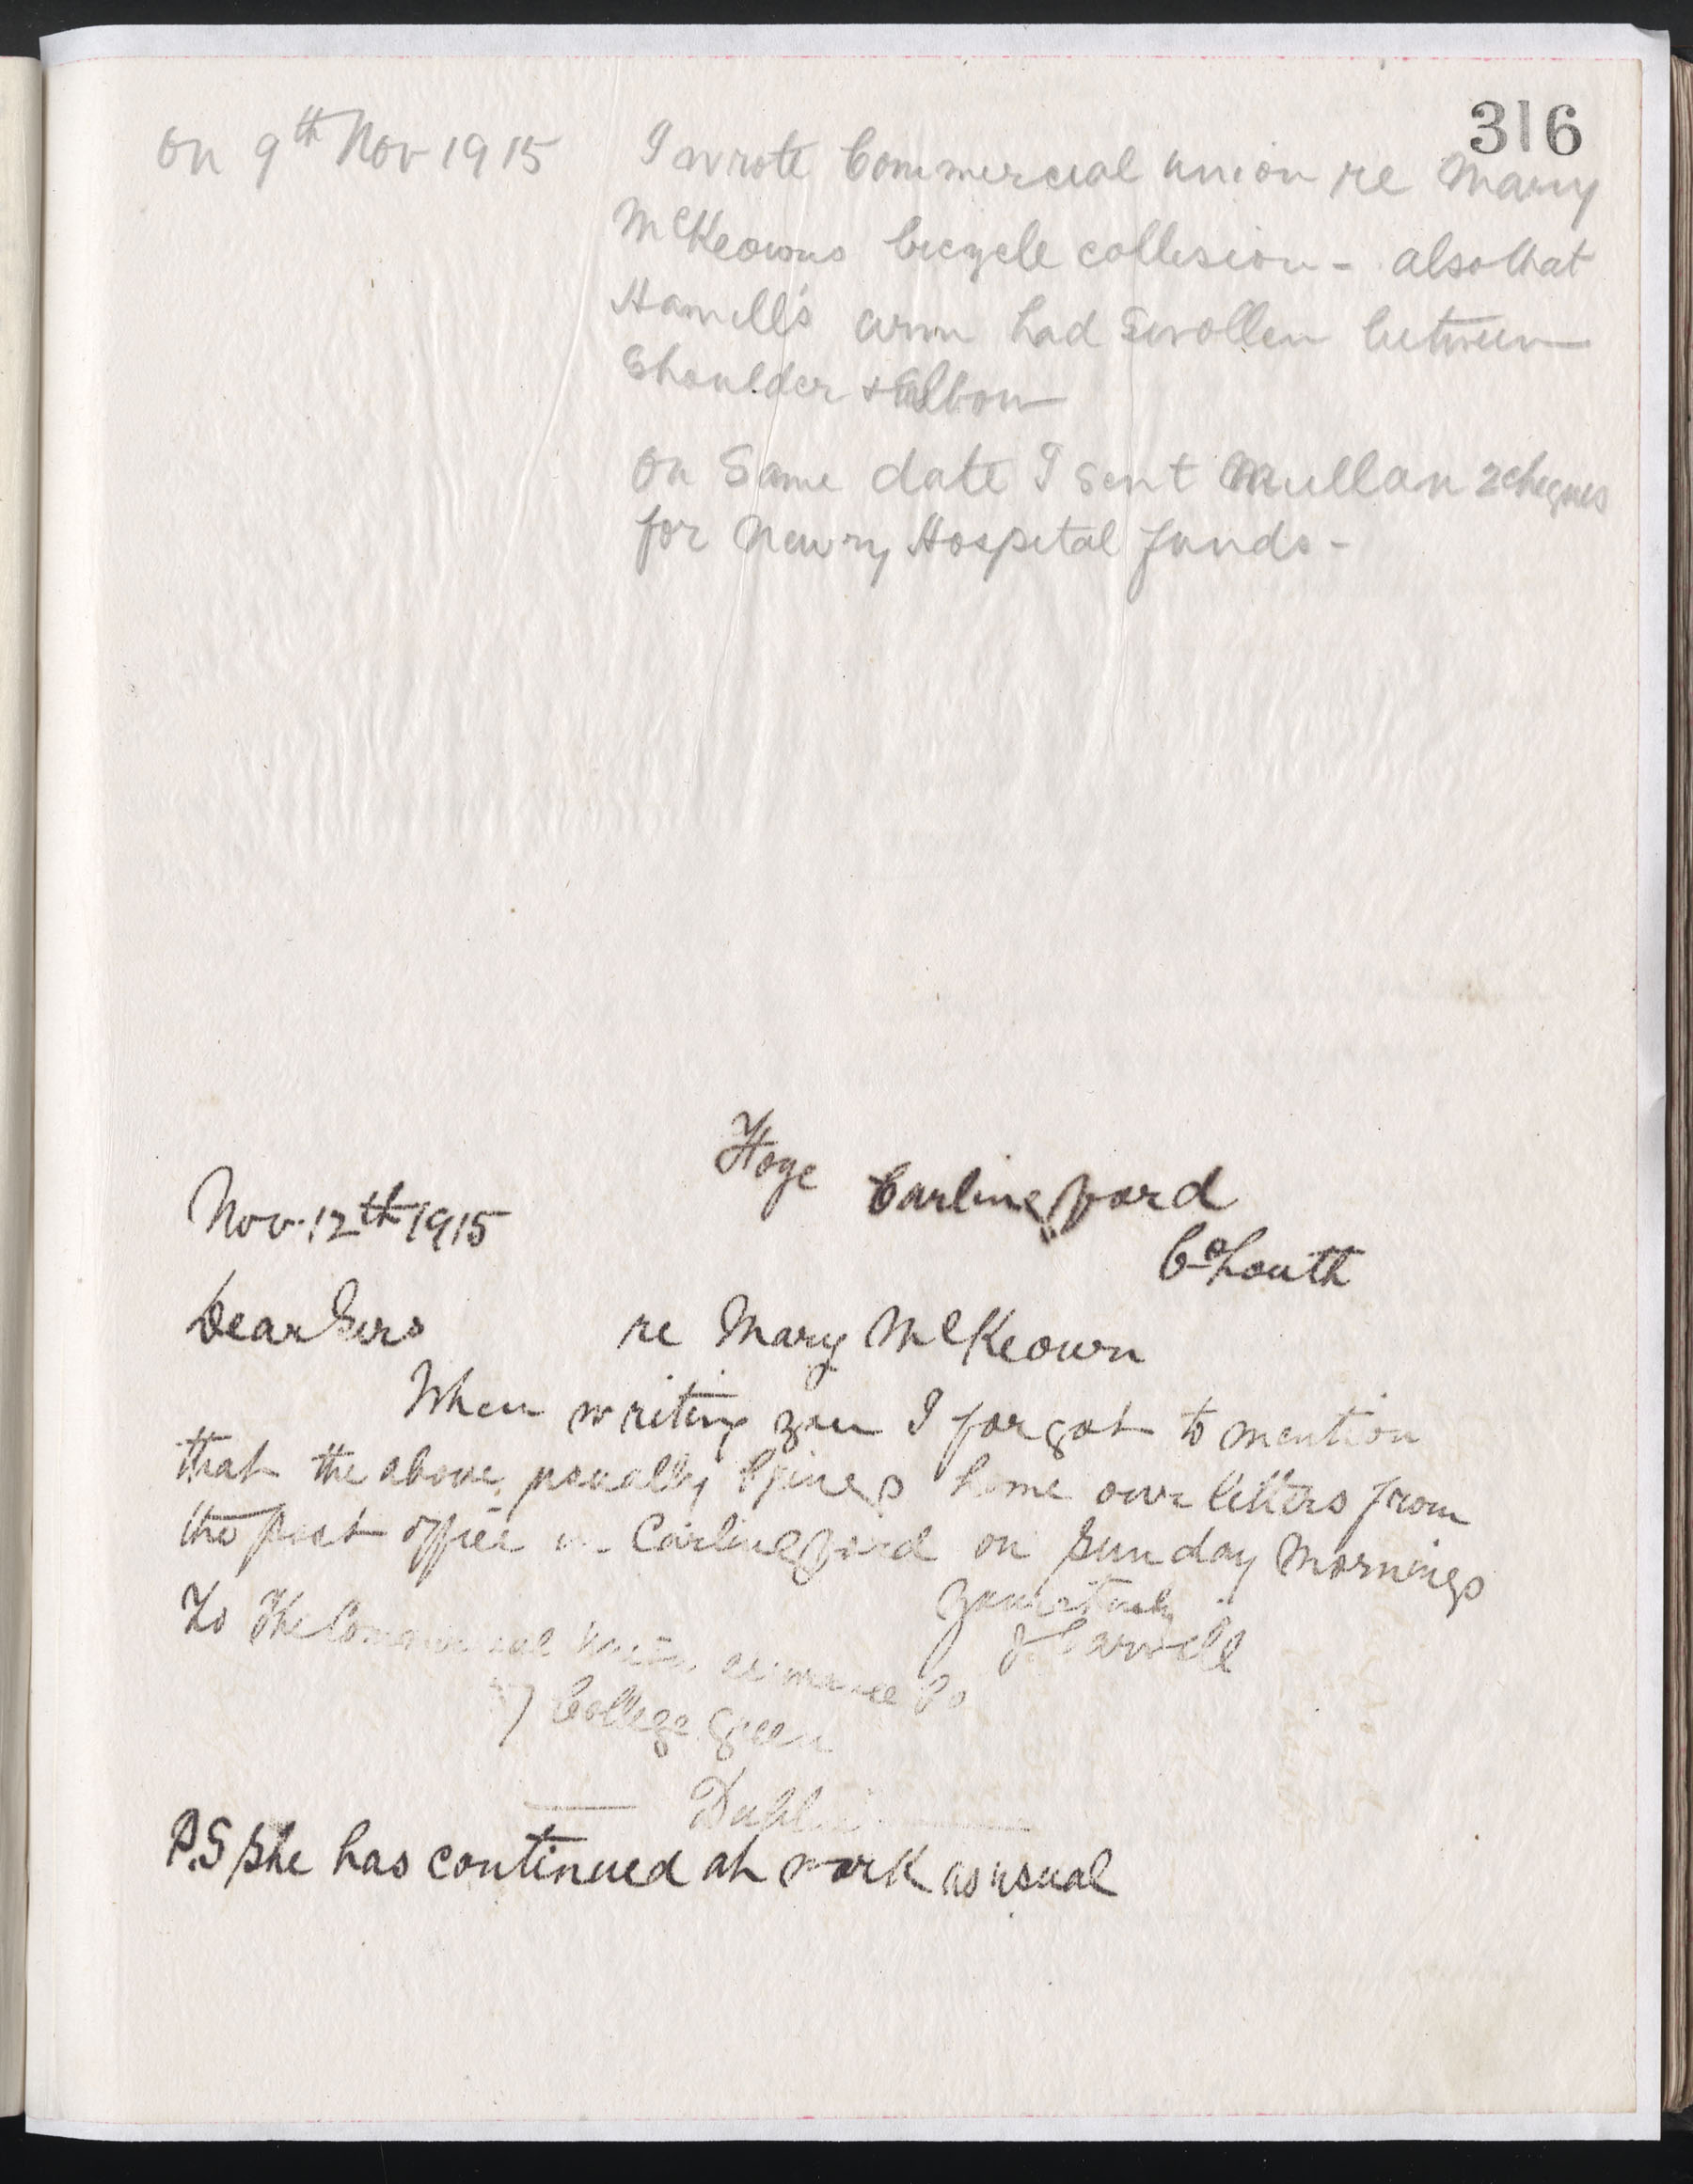 316
On 9th Nov 1915 I wrote Commercial Union re Mary
McKeowns bicycle collision - also that
Hamill's arm had swollen between
Shoulder & Elbow
On Same date I sent Mullan 2 cheques
for Newry Hospital funds -
Nov. 12th 1915
Carlingford
Co Louth
Dear Sirs re Mary McKeown
When writing you I forgot to mention
that the above usually brings home our letters from
the post office in Carlingford on Sunday mornings
Yours truly
To The Commercial Union assurance Co
College Green
Dublin
P.S She has continued at work as usual